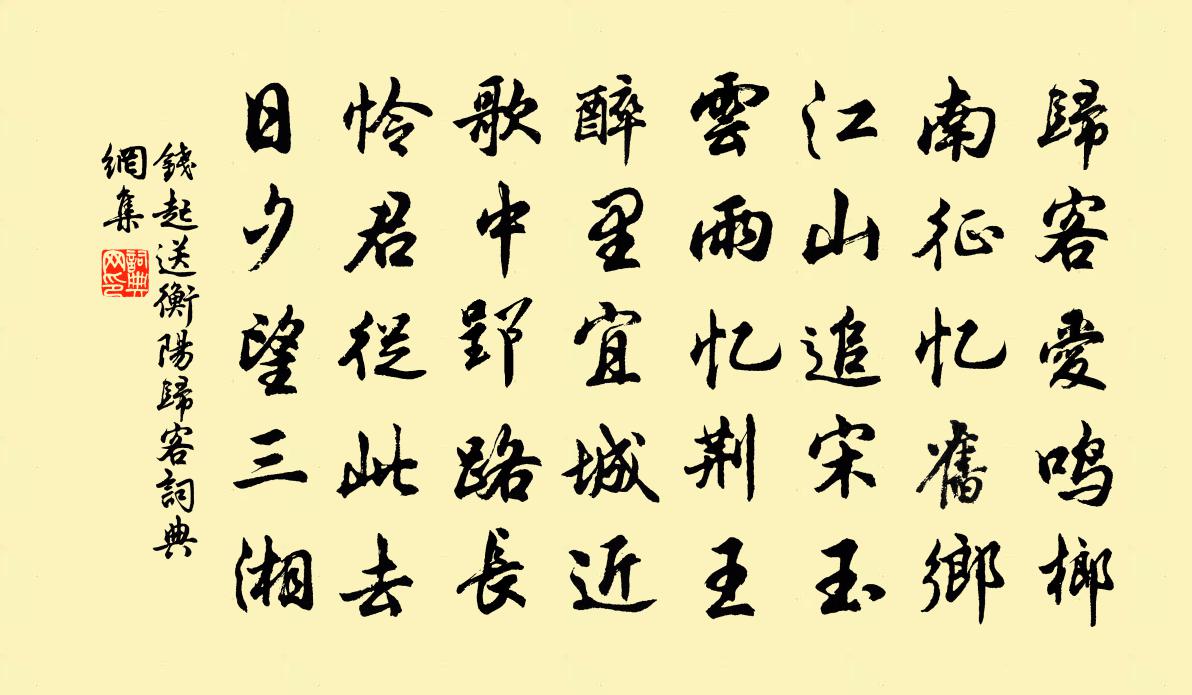 歸客愛鸣榔
南征忆舊鄉
江山追宋玉
雲雨忆荆王
醉里宜城近
歌中郢路長
怜君從此去
日夕望三湘
錢起送衡陽歸客詞典
網集
詞典网印